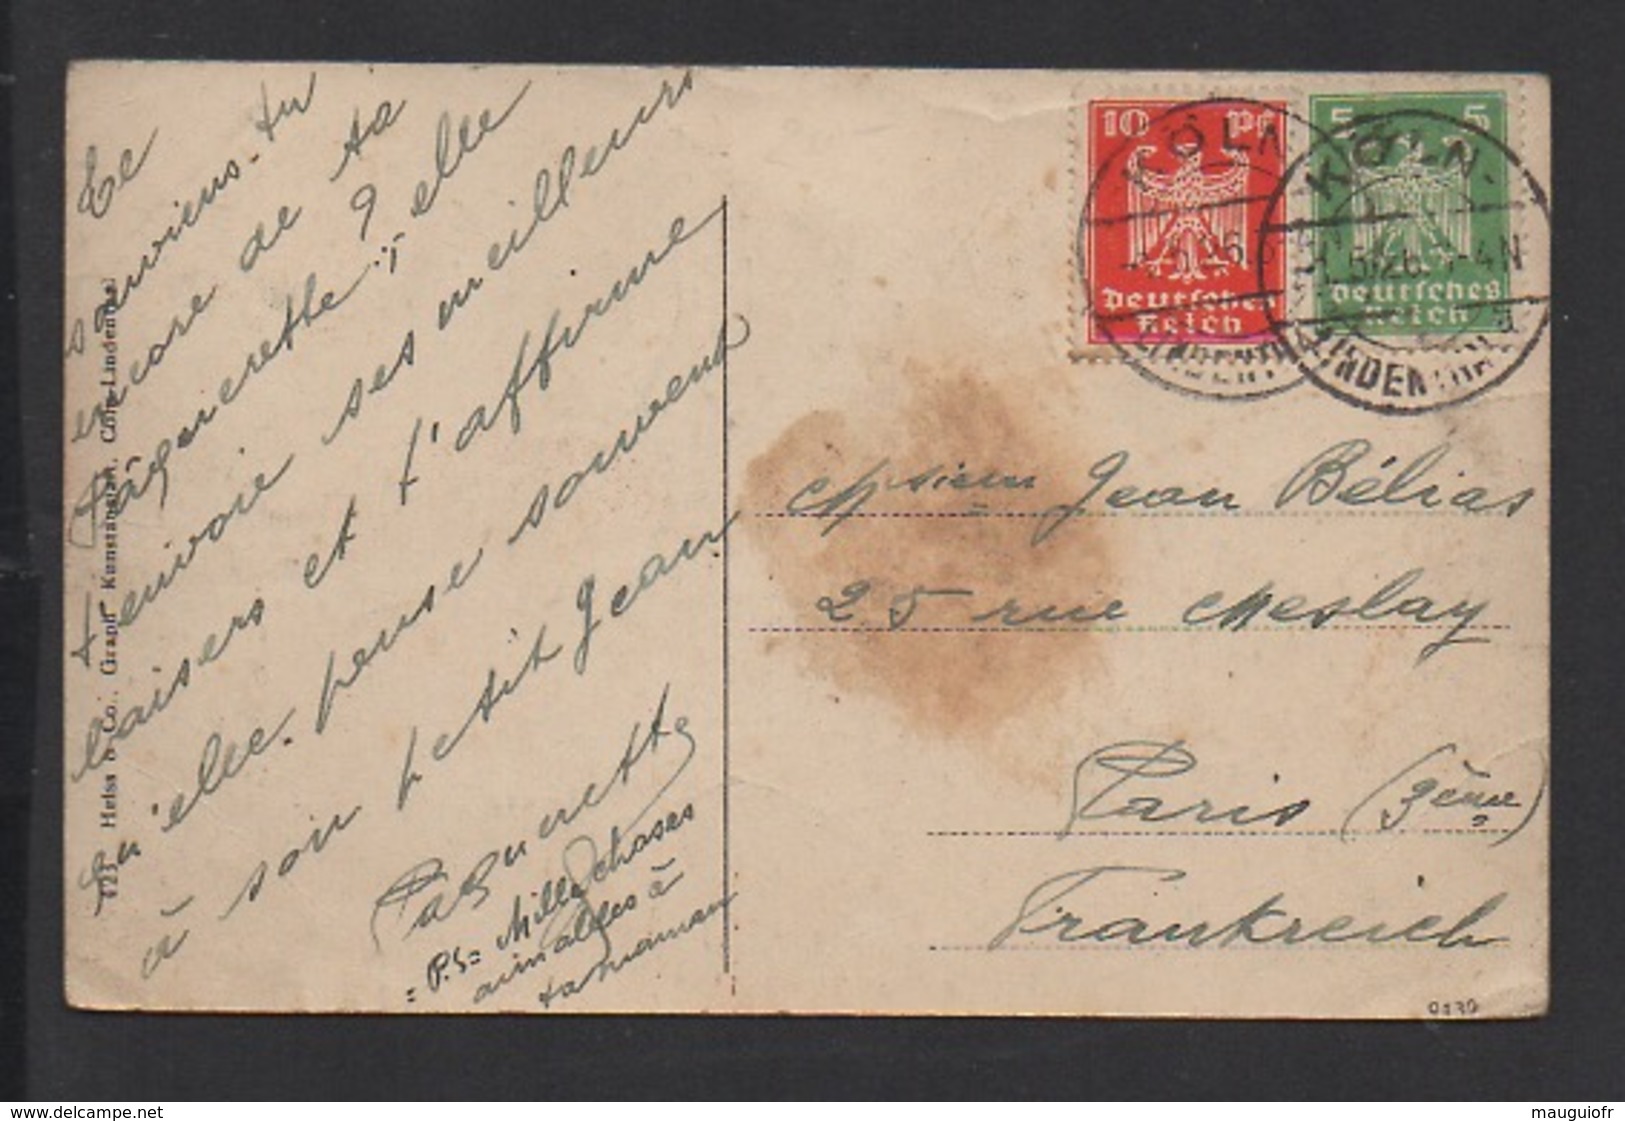 Te
souviens-tu
encore de ta
Pâquerette ? elle
t'envoie ses meilleurs
baisers et t'affirme
qu'elle pense souvent
à son petit Jean
Paquerette
= P.S = Mille choses
aimables à
ta maman
423 Heiss & Co., Graph. Kunstanstalt, Cöln-Lindenthal
10 Pf
Deutsches
Reich
5 5
Deutsches
Reich
KÖLN
LINDENTHAL
KÖLN-
5.26. -4N
a
LINDENTHAL
Msieur Jean Bélias
25 rue Meslay
Paris (3ème)
Frankreich
9130
delcampe.net
mauguiofr